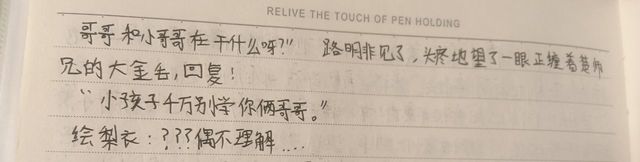 RELIVE THE TOUCH OF PEN HOLDING
哥哥和小哥哥在干什么呀?” 路明非见了,头疼地望了一眼正缠着楚师
兄的大金毛,回复:
“小孩子千万别学你俩哥哥。”
绘梨衣:???偶不理解....